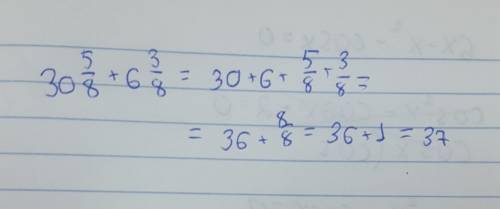 30 5/8 + 6 3/8 = 30 + 6 + 5/8 + 3/8 =
= 36 + 8/8 = 36 + 1 = 37